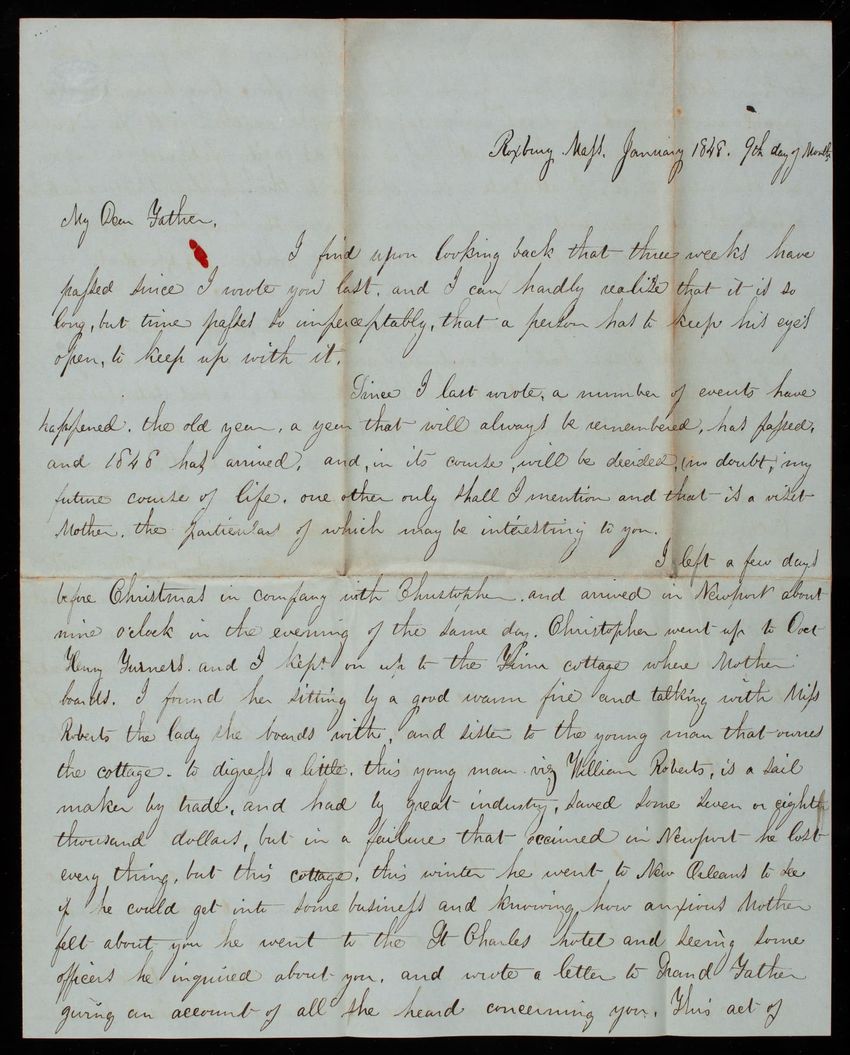 Roxbury Mass. January 1848. 9th day of Month
My Dear Father,
I find upon looking back that three weeks have
passed since I wrote you last, and I can hardly realize that it is so
long, but time passes so imperceptably, that a person has to keep his eyes
open, to keep up with it.
Since I last wrote, a number of events have
happened. the old year, a year that will always be remembered, has passed,
and 1848 has arrived, and, in its course, will be decided, (no doubt,) my
future course of life. one other only shall I mention and that is a visit
Mother. the particulars of which may be interesting to you.
I left a few days
before Christmas in company with Christopher. and arrived in Newport about
nine o'clock in the evening of the same day. Christopher went up to Doct
Henry Turners. and I kept on up to the cottage where Mother
boards. I found her sitting by a good warm fire and talking with Miss
Roberts the lady she boards with, and sister to the young man that owns
the cottage. to digress a little. this young man viz William Roberts, is a sail
maker by trade, and had by great industry, saved some seven or eight
thousand dollars, but in a failure that occured in Newport he lost
every thing, but this cottage. this winter he went to New Orleans to see
if he could get into some business and knowing how anxious Mother
felt about you he went to the St Charles hotel and seeing some
officers he inquired about you. and wrote a letter to Grand Father
giving an account of all she heard concerning you. This act of